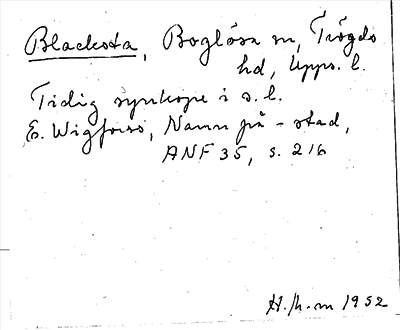 Blacksta, Boglösa sn, Trögds
hd, Upps. l.
Tidig synkope i s. l.
E. Wigforss, Namn på -stad,
ANF 35, s. 216
H. 1952